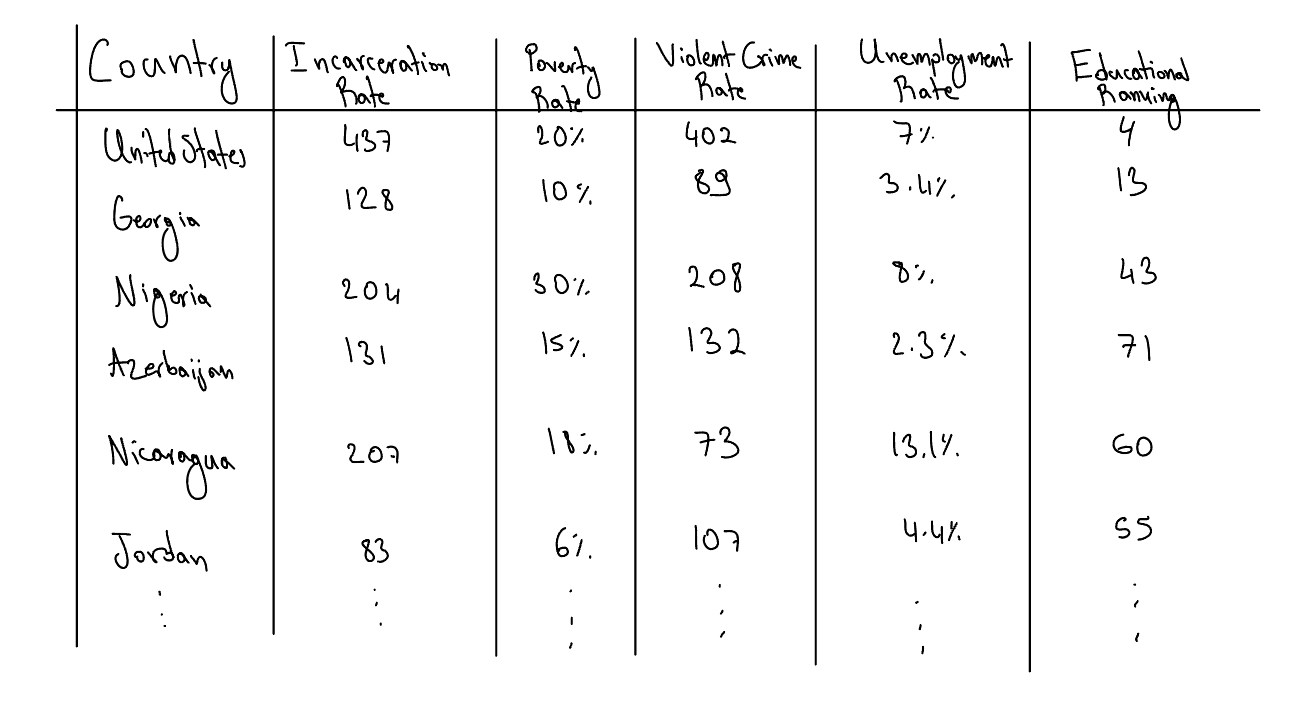 Country Incarceration Rate Poverty Rate Violent Crime Rate Unemployment Rate Educational Ranking
United States 437 20% 402 7% 4
Georgia 128 10% 89 3.4% 13
Nigeria 204 30% 208 8% 43
Azerbaijan 131 15% 132 2.3% 71
Nicaragua 207 18% 73 13.1% 60
Jordan 83 6% 107 4.4% 55